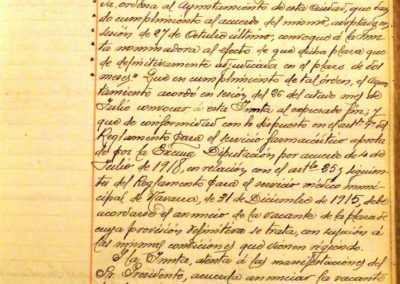 va, ordena al Ayuntamiento de esta Ciudad, que dan-
do cumplimiento al acuerdo del mismo, adoptado en
sesión de 27 de Octubre último, convoque á la Junta
nominadora al efecto de que dicha plaza que-
de definitivamente adjudicada en el plazo de dos
meses. Que en cumplimiento de tal orden, el Ayun-
tamiento acordó en sesión del 26 del citado mes de
Julio convocar á esta Junta al expresado fin; y
que de conformidad con lo dispuesto en el artº del
Reglamento para el servicio farmacéutico aproba-
do por la Excma Diputación por acuerdo de 4 de
Julio de 1918, en relación con el artº 35 y siguien-
tes del Reglamento para el servicio médico muni-
cipal de Navarra, de 31 de Diciembre de 1915, debe
acordarse el anuncio de la vacante de la plaza de
cuya provisión definitiva se trata, con sujeción á
las mismas condiciones que vienen rigiendo.
Y la Junta, atenta á las manifestaciones del
Sr. Presidente, acuerda anunciar la vacante